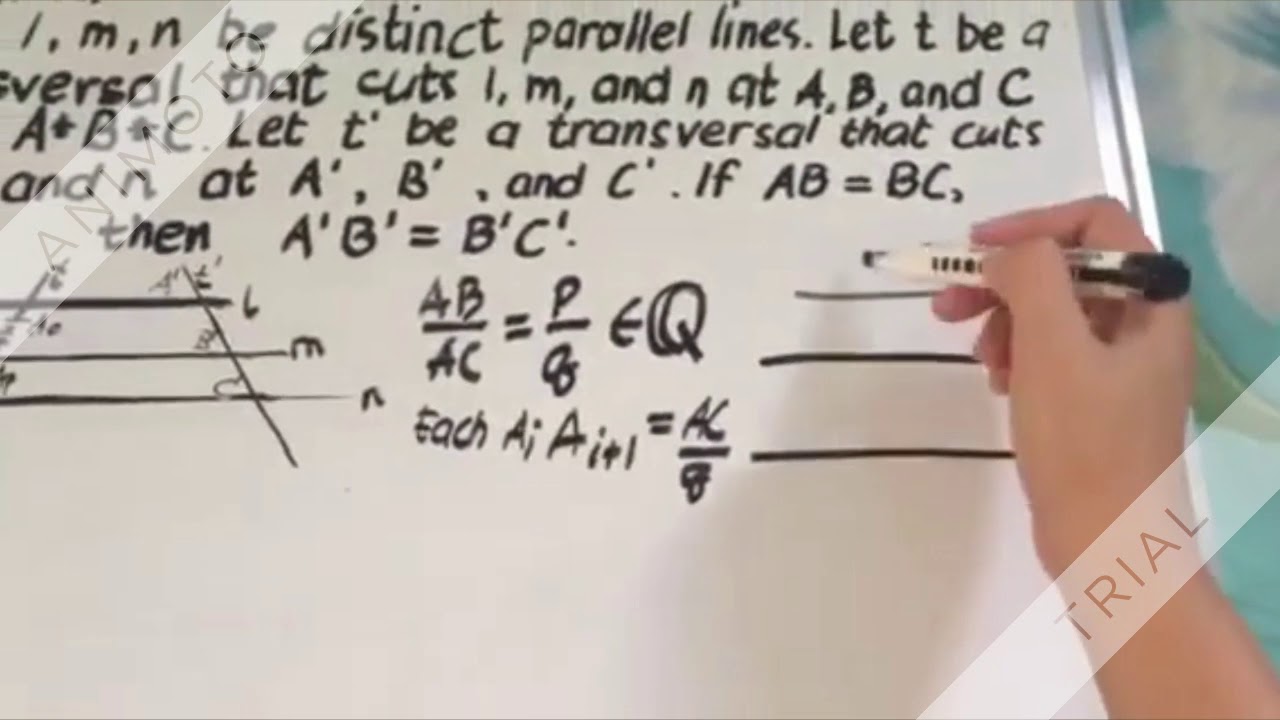 l, m, n be distinct parallel lines. Let t be a
sversal that cuts l, m, and n at A, B, and C
A*B*C. Let t' be a transversal that cuts
and n at A', B', and C'. If AB = BC,
then A'B' = B'C'.
t A' t'
l
B'
m
C'
n
AB/AC = p/q ∈ ℚ
Each AiAi+1 = AC/q
ANMOTO
TRIAL